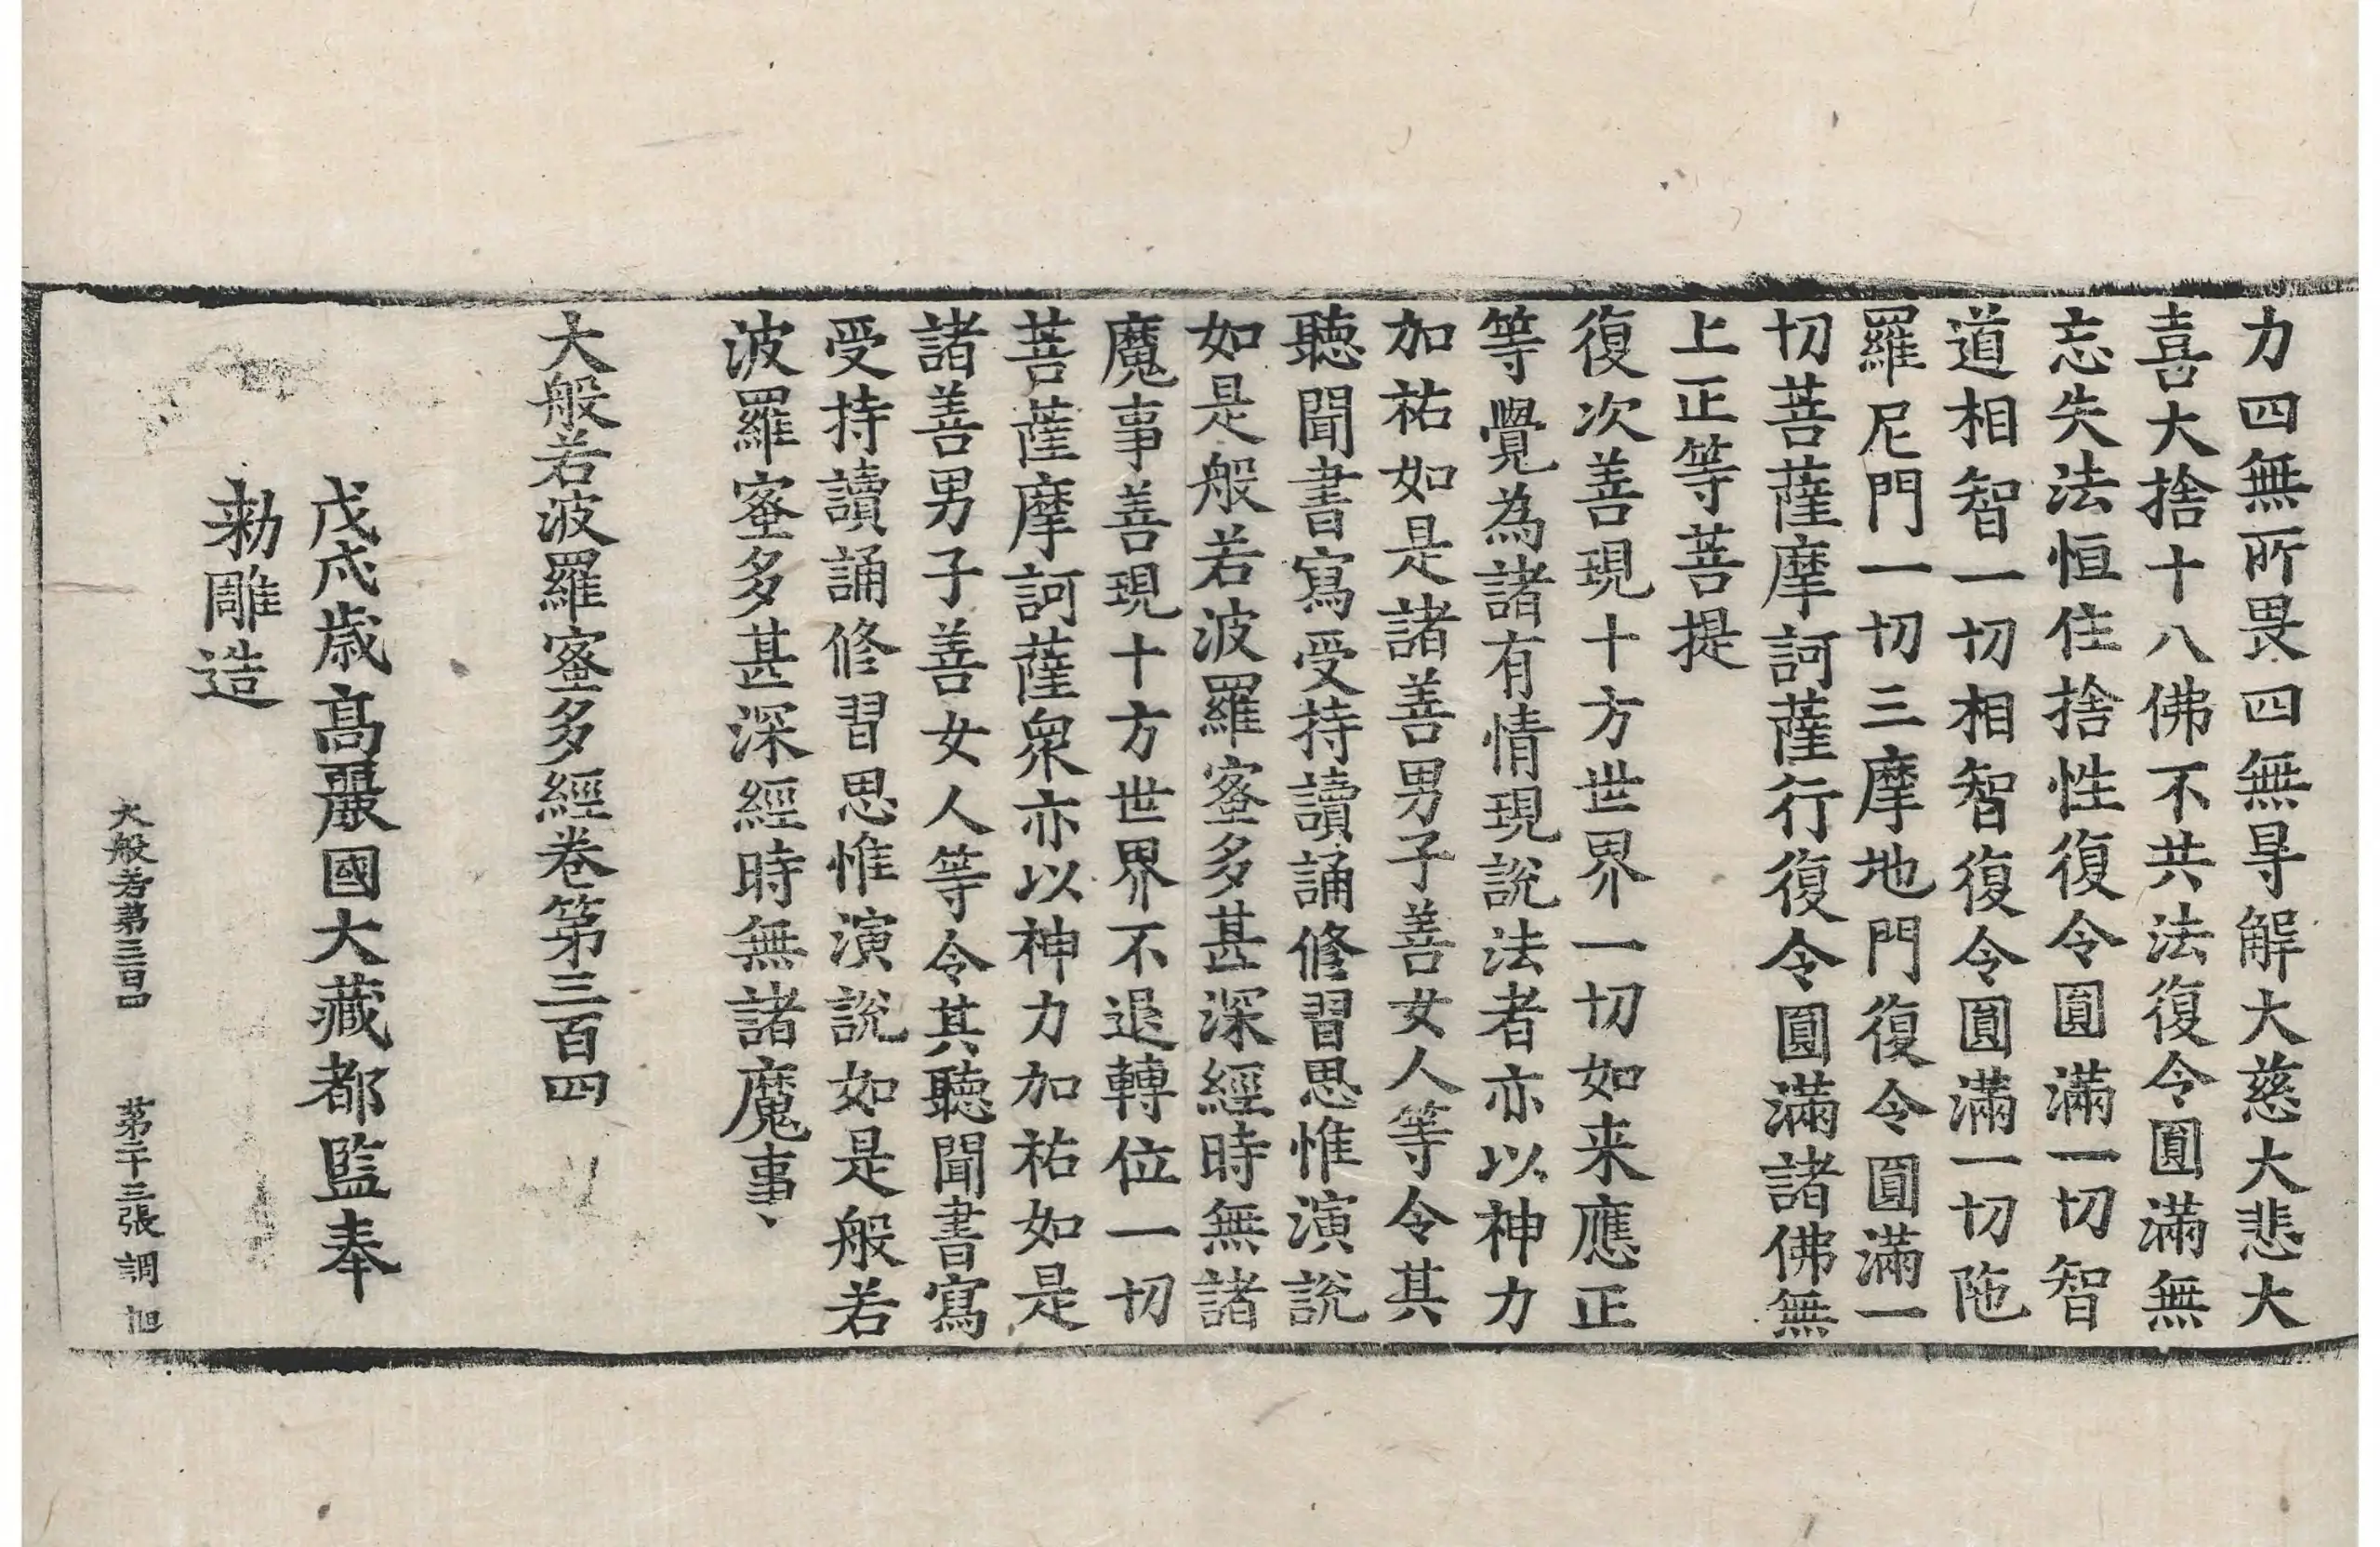 力四無所畏四無㝵解大慈大悲大
喜大捨十八佛不共法復令圓滿無
忘失法恒住捨性復令圓滿一切智
道相智一切相智復令圓滿一切陁
羅尼門一切三摩地門復令圓滿一
切菩薩摩訶薩行復令圓滿諸佛無
上正等菩提
復次善現十方世界一切如来應正
等覺為諸有情現說法者亦以神力
加祐如是諸善男子善女人等令其
聽聞書寫受持讀誦修習思惟演說
如是般若波羅蜜多甚深經時無諸
魔事善現十方世界不退轉位一切
菩薩摩訶薩衆亦以神力加祐如是
諸善男子善女人等令其聽聞書寫
受持讀誦修習思惟演說如是般若
波羅蜜多甚深經時無諸魔事、
大般若波羅蜜多經卷第三百四
戊戌歳髙麗國大藏都監奉
勅雕造
大般若第三百四 第二十三張 調 旭